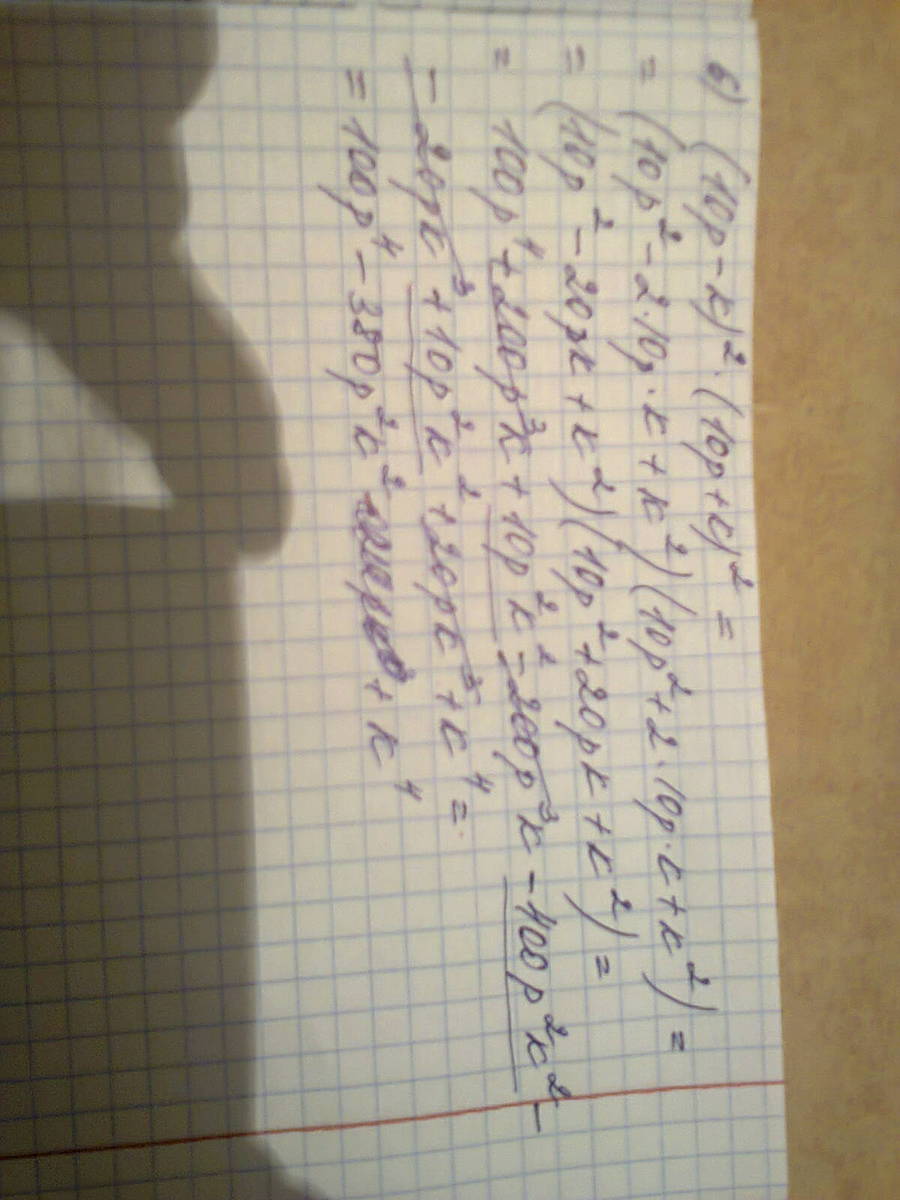 б) (10p-к)²·(10p+к)² =
= (10p²-2·10p·к+к²)(10p²+2·10p·к+к²) =
= (10p²-20pк+к²)(10p²+20pк+к²) =
= 100p⁴+200p³к+10p²к²-200p³к-400p²к²-
-20pк³+10p²к²+20pк³+к⁴=
=100p⁴-380p²к² +к⁴